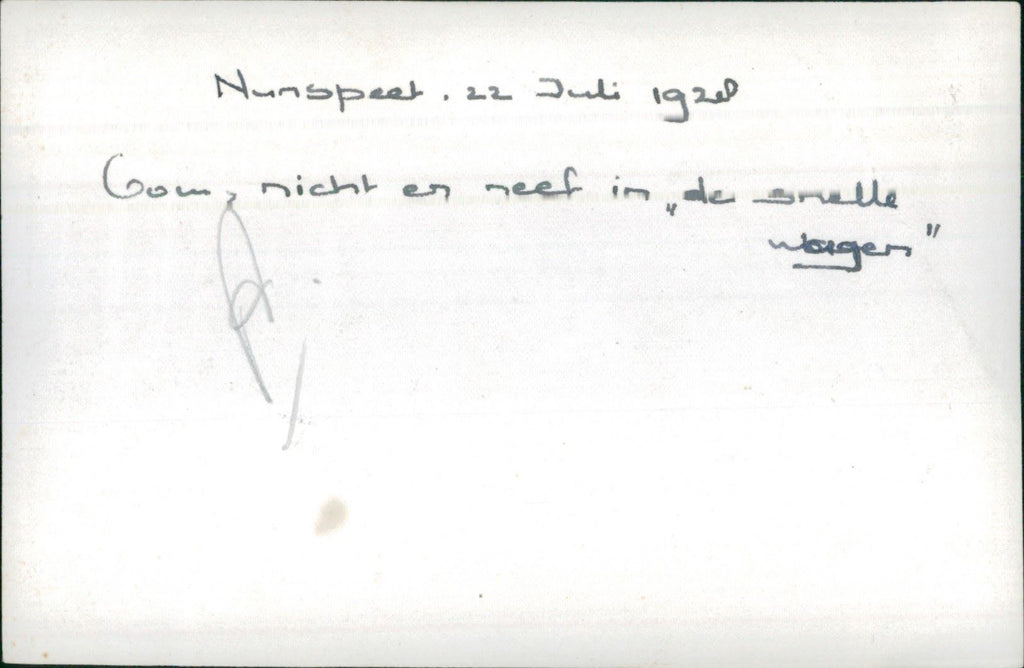 Nunspeet. 22 Juli 1928
Oom, nicht en neef in „de snelle
wagen”